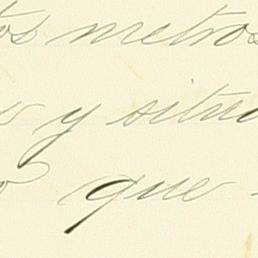 tos metros
y situa
que